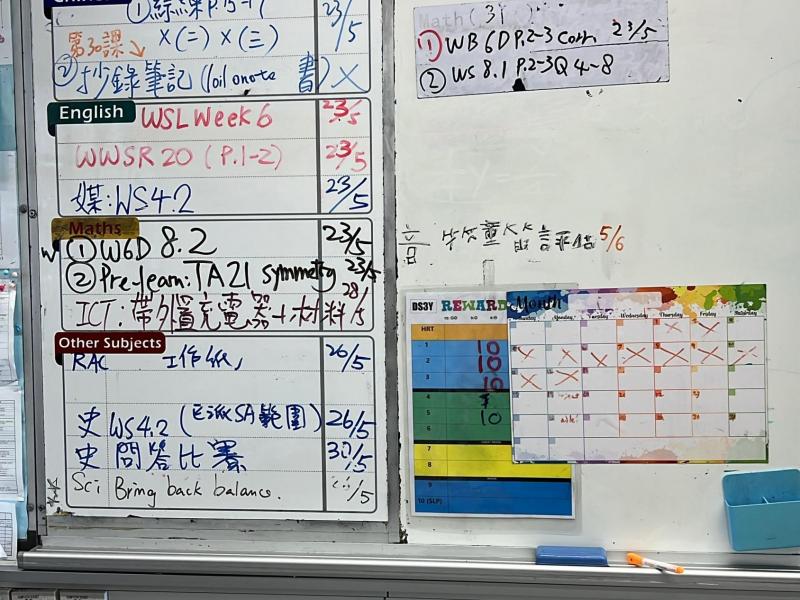 Chinese
① 綜練P.15-17 23/5
第30課
×(二) ×(三)
② 抄錄筆記 書)
English
WSL Week 6 23/5
WWSR 20 (P.1-2) 23/5
媒:WS4.2 23/5
Maths
① W6D 8.2 23/5
② Pre-learn: TA21 symmetry 23/5
ICT: 帶外置充電器+材料 28/5
Other Subjects
RAC 工作紙 26/5
史 WS4.2 (已派SA範圍) 26/5
史 問答比賽 30/5
Sci Bring back balance. /5
Math(3i)
① WB 6D P.2-3 Corr. 23/5
② WS 8.1 P.2-3 Q4-8
5/6
DS3Y REWARD
HRT
1 10
2 10
3 10
4
5 10
6
7
8
9
10 (SLP)
Month
Monday Tuesday Wednesday Thursday Friday Saturday